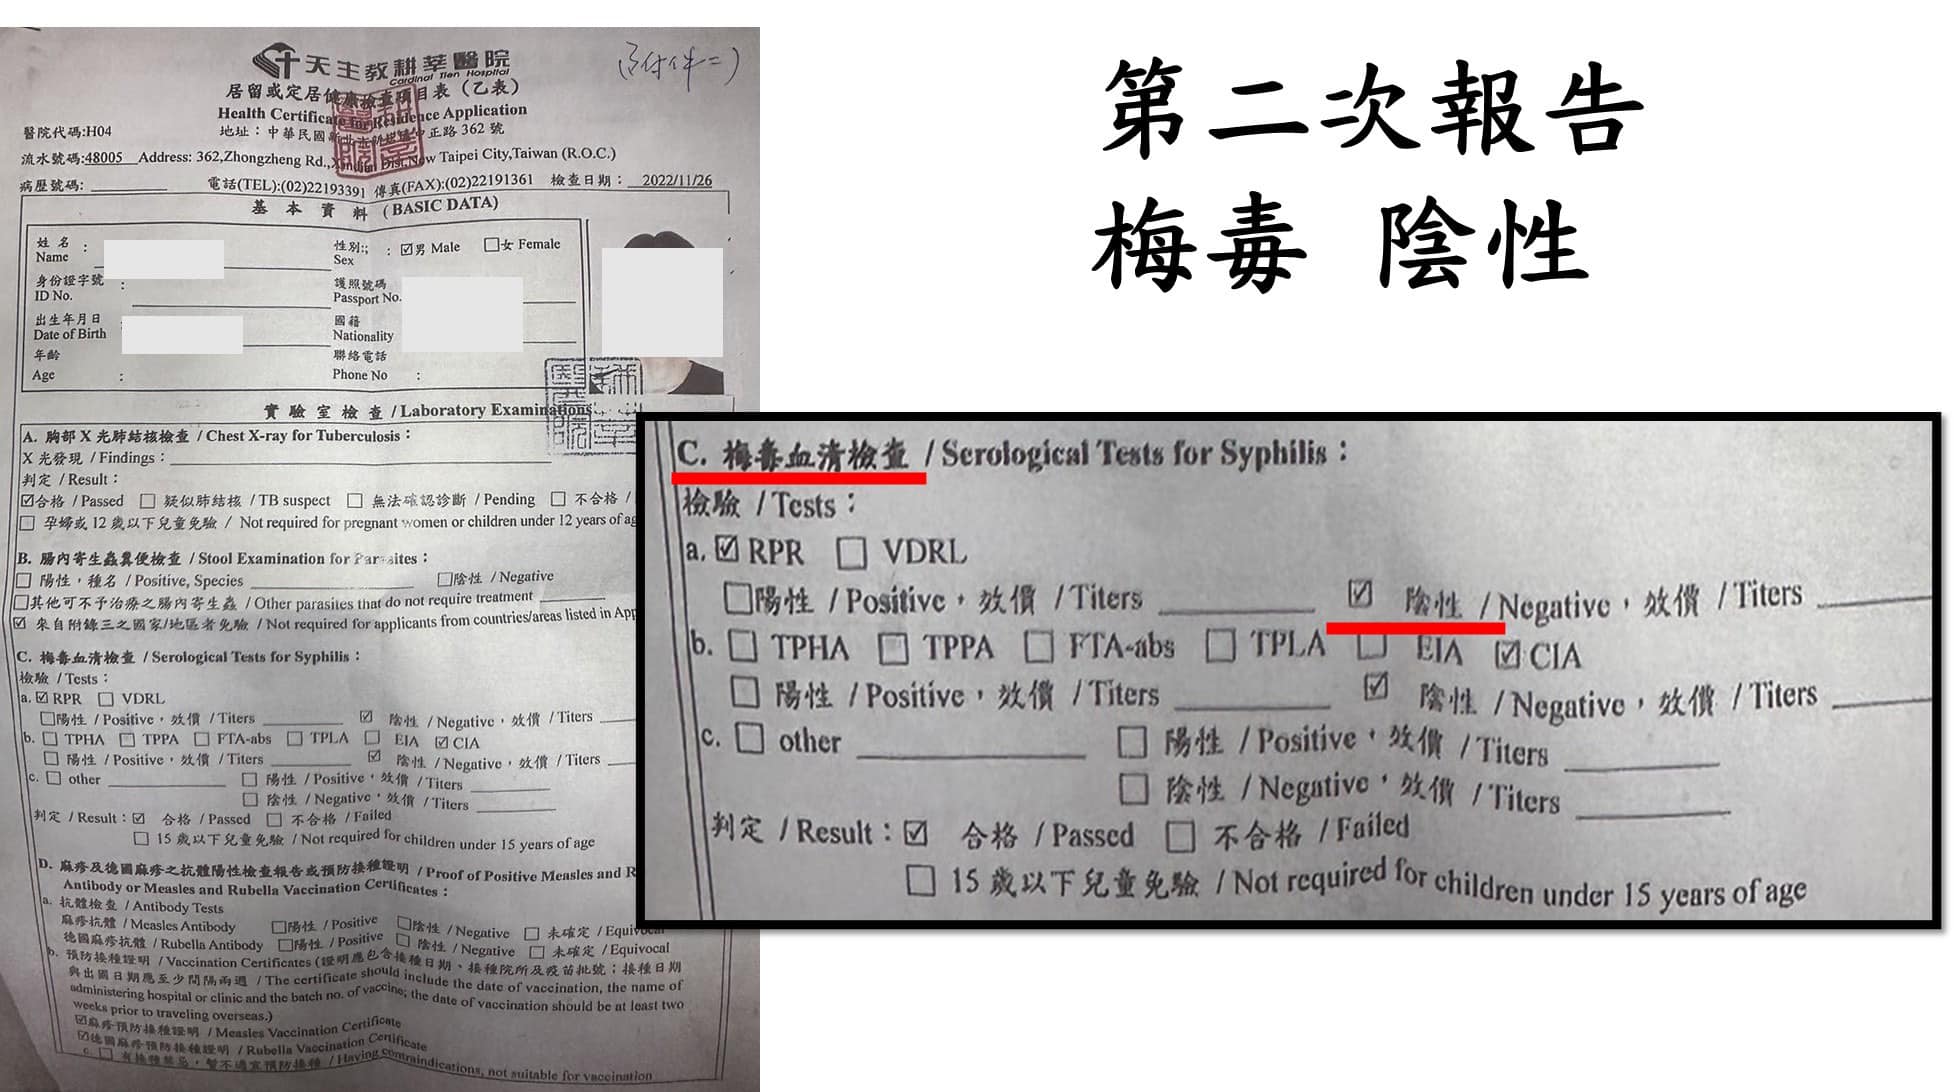 第二次報告
梅毒 陰性
(附件二)
天主教耕莘醫院
Cardinal Tien Hospital
居留或定居健康檢查項目表（乙表）
Health Certificate for Residence Application
醫院代碼:H04
地址：中華民國新北市新店區中正路 362 號
流水號碼:48005 Address: 362,Zhongzheng Rd.,Xindian Dist,New Taipei City,Taiwan (R.O.C.)
病歷號碼: 電話(TEL):(02)22193391 傳真(FAX):(02)22191361 檢查日期： 2022/11/26
基 本 資 料 (BASIC DATA)
姓 名 : 性別:; : ☑男 Male □女 Female
Name Sex
身份證字號 : 護照號碼
ID No. Passport No.
出生年月日 國籍
Date of Birth Nationality
年齡 聯絡電話
Age : Phone No :
實 驗 室 檢 查 / Laboratory Examinations
A. 胸部 X 光肺結核檢查 / Chest X-ray for Tuberculosis：
X 光發現 / Findings：
判定 / Result：
☑合格 / Passed □ 疑似肺結核 / TB suspect □ 無法確認診斷 / Pending □ 不合格 /
□ 孕婦或 12 歲以下兒童免驗 / Not required for pregnant women or children under 12 years of ag
B. 腸內寄生蟲糞便檢查 / Stool Examination for Parasites：
□ 陽性，種名 / Positive, Species □陰性 / Negative
□其他可不予治療之腸內寄生蟲 / Other parasites that do not require treatment
☑ 來自附錄三之國家/地區者免驗 / Not required for applicants from countries/areas listed in App
C. 梅毒血清檢查 / Serological Tests for Syphilis：
檢驗 / Tests：
a. ☑ RPR □ VDRL
□陽性 / Positive，效價 / Titers ☑ 陰性 / Negative，效價 / Titers
b. □ TPHA □ TPPA □ FTA-abs □ TPLA □ EIA ☑ CIA
□ 陽性 / Positive，效價 / Titers ☑ 陰性 / Negative，效價 / Titers
c. □ other □ 陽性 / Positive，效價 / Titers
□ 陰性 / Negative，效價 / Titers
判定 / Result：☑ 合格 / Passed □ 不合格 / Failed
□ 15 歲以下兒童免驗 / Not required for children under 15 years of age
D. 麻疹及德國麻疹之抗體陽性檢查報告或預防接種證明 / Proof of Positive Measles and R
Antibody or Measles and Rubella Vaccination Certificates：
a. 抗體檢查 / Antibody Tests
麻疹抗體 / Measles Antibody □陽性 / Positive □陰性 / Negative □ 未確定 / Equivocal
德國麻疹抗體 / Rubella Antibody □陽性 / Positive □ 陰性 / Negative □ 未確定 / Equivocal
b. 預防接種證明 / Vaccination Certificates (證明應包含接種日期、接種院所及疫苗批號；接種日期
與出國日期應至少間隔兩週 / The certificate should include the date of vaccination, the name of
administering hospital or clinic and the batch no. of vaccine; the date of vaccination should be at least two
weeks prior to traveling overseas.)
☑麻疹預防接種證明 / Measles Vaccination Certificate
☑德國麻疹預防接種證明 / Rubella Vaccination Certificate
c. □ 有接種禁忌，暫不適宜預防接種 / Having contraindications, not suitable for vaccination
C. 梅毒血清檢查 / Serological Tests for Syphilis：
檢驗 / Tests：
a. ☑ RPR □ VDRL
□陽性 / Positive，效價 / Titers ☑ 陰性 / Negative，效價 / Titers
b. □ TPHA □ TPPA □ FTA-abs □ TPLA □ EIA ☑ CIA
□ 陽性 / Positive，效價 / Titers ☑ 陰性 / Negative，效價 / Titers
c. □ other □ 陽性 / Positive，效價 / Titers
□ 陰性 / Negative，效價 / Titers
判定 / Result：☑ 合格 / Passed □ 不合格 / Failed
□ 15 歲以下兒童免驗 / Not required for children under 15 years of age